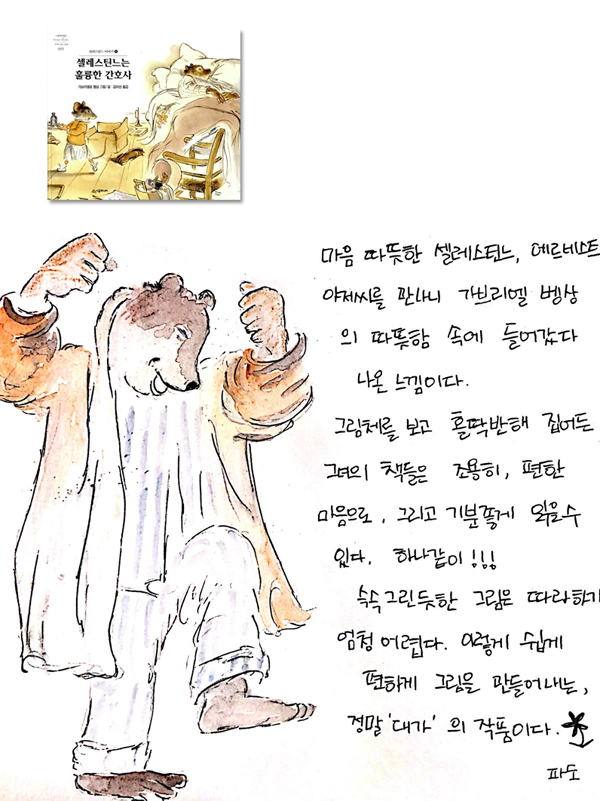 셀레스틴느는
훌륭한 간호사
마음 따뜻한 셀레스틴느, 에르네스트
아저씨를 만나니 가브리엘 벵상
의 따뜻함 속에 들어갔다
나온 느낌이다.
그림체를 보고 홀딱반해 집어든
그녀의 책들은 조용히, 편한
마음으로, 그리고 기분좋게 읽을수
있다. 하나같이!!!
슥슥그린듯한 그림은 따라하기
엄청 어렵다. 이렇게 쉽게
편하게 그림을 만들어내는,
정말 '대가' 의 작품이다.
파도